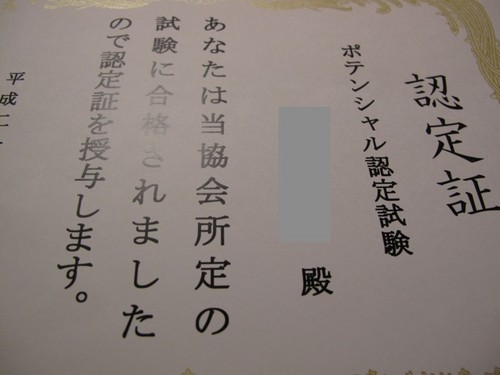 認定証
ポテンシャル認定試験
殿
あなたは当協会所定の
試験に合格されました
ので認定証を授与します。
平成二